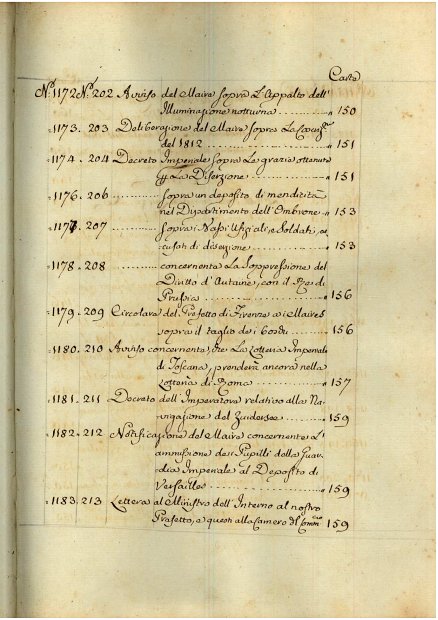 Carte
Nº. 1172 Nº. 202 Avviso del Maire sopra L'Appalto dell'
Illuminazione notturna ........ " 150
" 1173. 203 Deliberazione del Maire sopra La
del 1812 .................. " 151
" 1174. 204 Decreto Imperiale sopra Le grazie ottenute
La Diserzione ............ " 151
" 1176. 206 ............ sopra un deposito di mendicità
nel Dipartimento dell'Ombrone " 153
" 1177. 207 ............ sopra i Nassi Ufiziali e Soldati, ac
cusati di diserzione ......... " 153
" 1178. 208 ............ concernente La Soppressione del
Diritto d'Autaine, con il Rè di
Prussia .................. " 156
" 1179. 209 Circolare del Prefetto di Firenze ai Maires
sopra il taglio dei boschi ..... " 156
" 1180. 210 Avviso concernente, che La Lotteria Imperiale
di Toscana, prenderà ancora nella
Lotteria di Roma ......... " 157
" 1181. 211 Decreto dell'Imperatore relativo alla Na-
vigazione del Zuidersee ....... " 159
" 1182. 212 Notificazione del Maire concernente L'
ammissione dei Pupilli della Guar-
dia Imperiale al Deposito di
Versailles .................. " 159
" 1183. 213 Lettera al Ministro dell'Interno al nostro
Prefetto, e questi alla Camera di 159